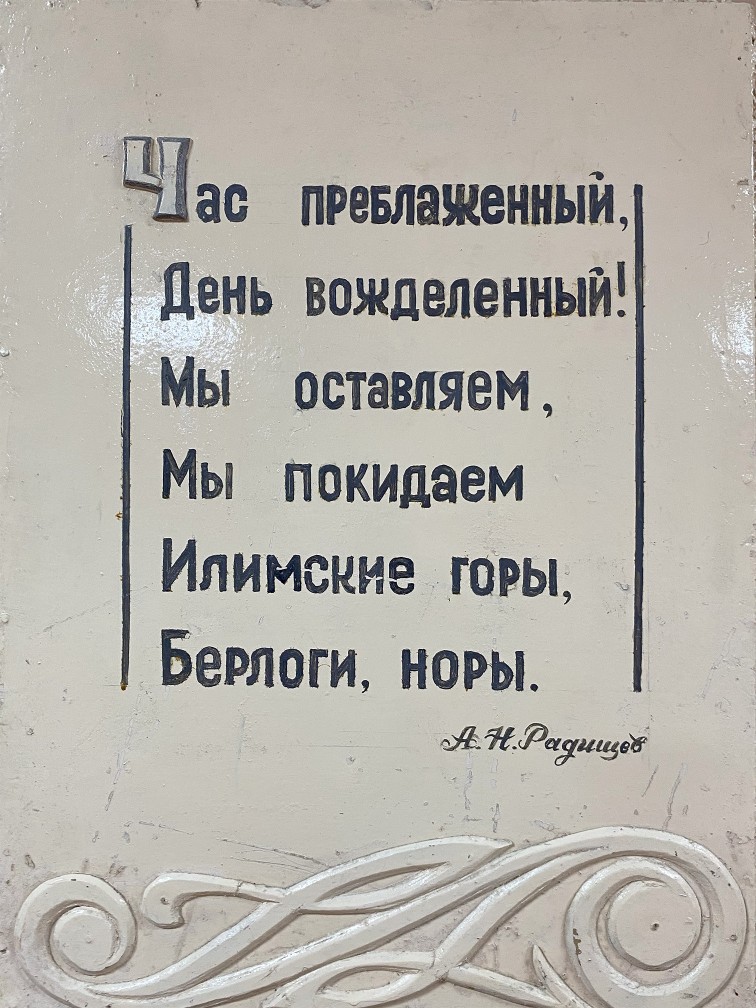 Час преблаженный,
День вожделенный!
Мы оставляем,
Мы покидаем
Илимские горы,
Берлоги, норы.
А. Н. Радищев